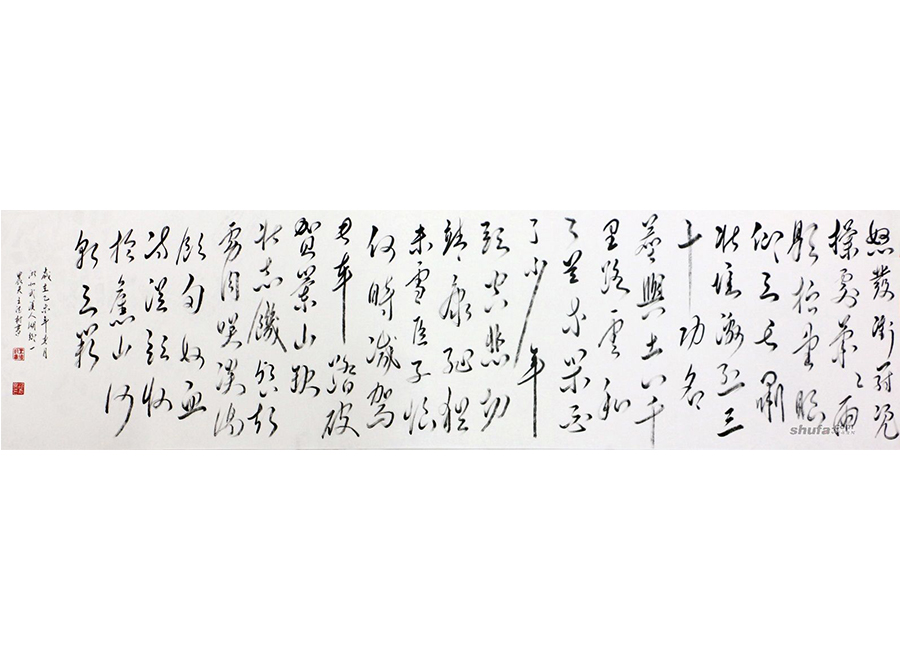 怒發衝冠凭
欄處蕭〻雨
歇抬望眼
仰天長嘯
壯懷激烈三
十功名
塵與土八千
里路雲和
月莫等閒白
了少年
頭空悲切
靖康恥猶
未雪臣子恨
何時滅駕
長車踏破
賀蘭山缺
壯志饑餐胡
虜肉笑談渴
飲匈奴血
待從頭收
拾舊山河
朝天闕
歲在乙未年冬月
shufa